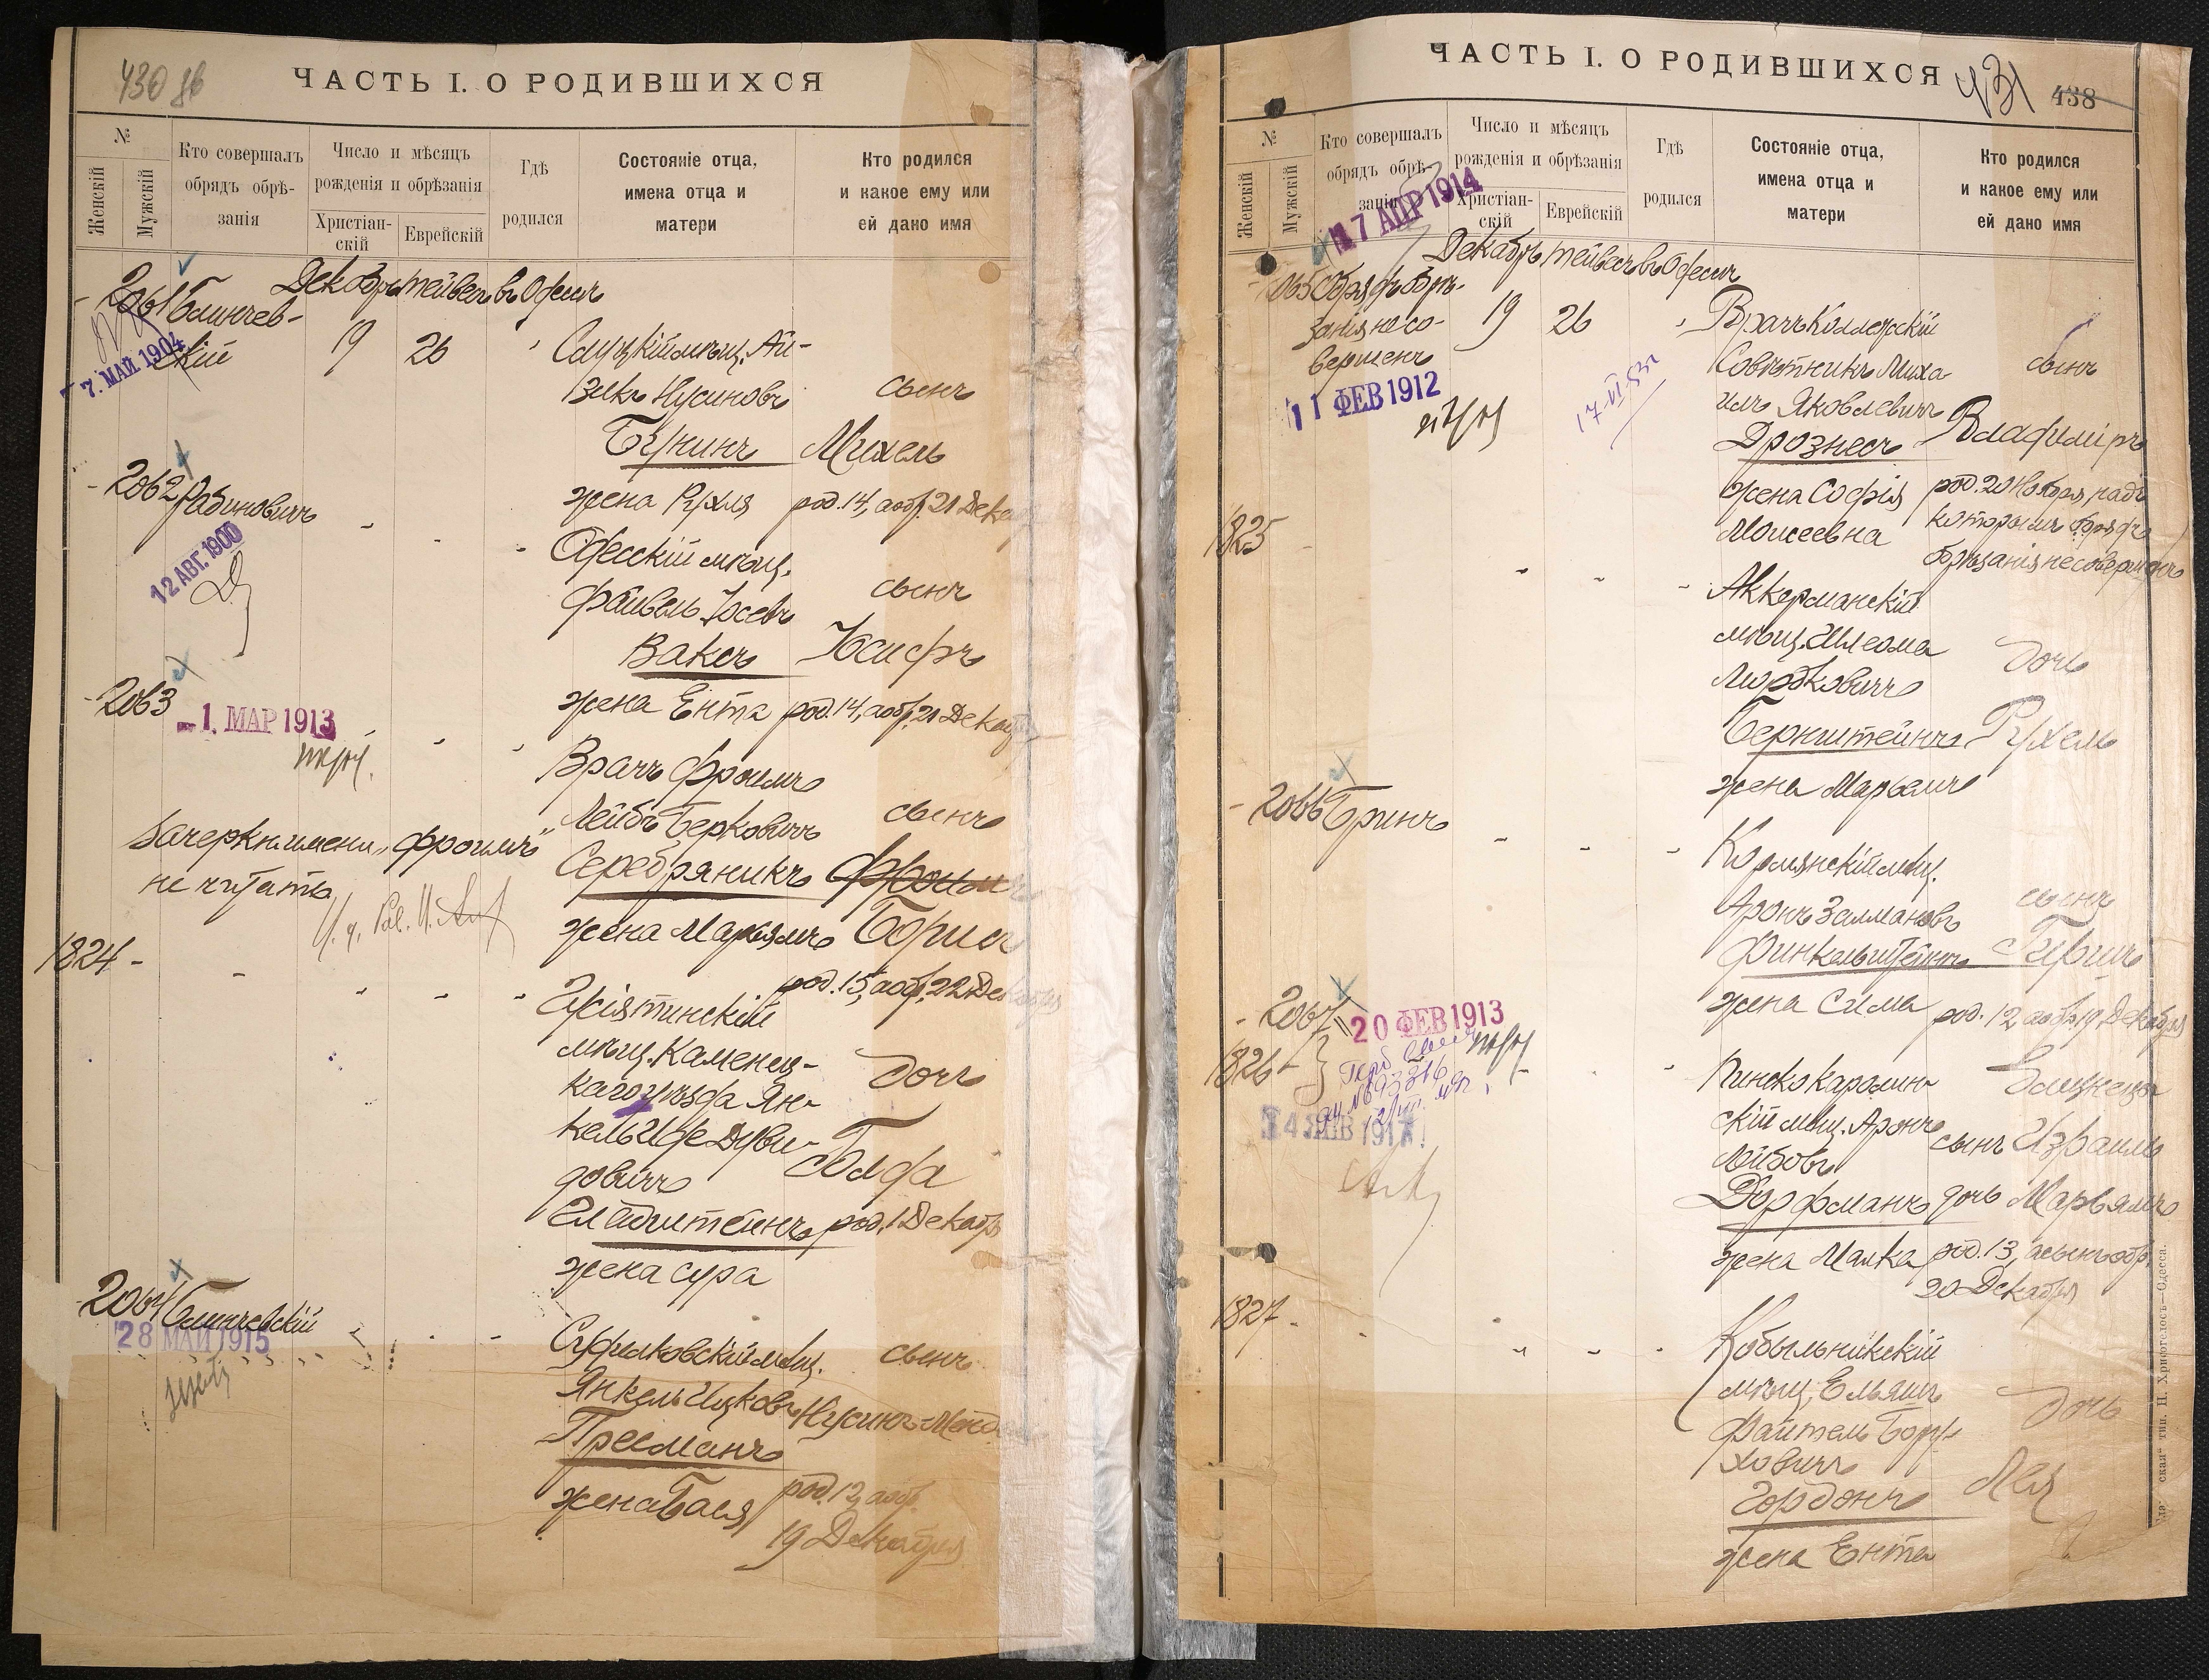 430 об
ЧАСТЬ I. О РОДИВШИХСЯ
№
Женскій
Мужскій
Кто совершалъ
обрядъ обрѣ-
занія
Число и мѣсяцъ
рожденія и обрѣзанія
Христіан-
скій
Еврейскій
Гдѣ
родился
Состояніе отца,
имена отца и
матери
Кто родился
и какое ему или
ей дано имя
Декабрь тейвесъ въ Одессѣ
2061
7. МАЙ 1904
19
26
Слуцкій мѣщ. Ай-
зикъ Нусиновъ
Бунинъ
жена Рухля
сынъ
Михель
род. 14, а обр. 21 Дека
2062 Рабиновичъ
12 АВГ. 1900
Одесскій мѣщ.
Файвель Іосевъ
Ваксъ
жена Ента
сынъ
Іосифъ
род. 14, а обр. 21 Декаб
2063
1. МАР 1913
Врачъ Фроимъ
Лейбъ Берковичъ
Серебряникъ
жена Марьямъ
сынъ
Фроимъ
Борисъ
род. 15, а обр. 22 Декабря
Зачеркн. имени „Фроимъ"
не читать.
1824
мѣщ. Каменец-
каго уѣзда Ян-
кель Иде Дуви-
довичъ
Гладштейнъ
жена Сура
дочь
Голда
род. 1 Декабр
2064
28 МАЙ 1915
мѣщ.
Янкель Ицковъ
Прееманъ
жена Бася
сынъ
Нусинъ-Менд
род. 12, а обр.
19 Декабря
ЧАСТЬ I. О РОДИВШИХСЯ
431
438
№
Женскій
Мужскій
Кто совершалъ
обрядъ обрѣ-
занія
Число и мѣсяцъ
рожденія и обрѣзанія
Христіан-
скій
Еврейскій
Гдѣ
родился
Состояніе отца,
имена отца и
матери
Кто родился
и какое ему или
ей дано имя
17 АПР 1914
Декабрь тейвесъ въ Одессѣ
065 Обрядъ обрѣ-
занія не со-
вершенъ
11 ФЕВ 1912
19
26
Врачъ Коллежскій
Совѣтникъ Миха
илъ Яковлевичъ
Дрознесъ
жена Софія
Моисеевна
сынъ
Владиміръ
род. 20 Ноября, надъ
которымъ обрядъ
обрѣзанія не совершенъ
1825
Аккерманскій
мѣщ. Шлеома
Мордковичъ
Бернштейнъ
жена Марьямъ
дочь
Рухель
2066 Гринъ
Кормянскій мѣщ.
Аронъ Залмановъ
Финкельштейнъ
жена Сима
сынъ
Гиршъ
род. 12 а обр. 19 Декабря
2067
1826
20 ФЕВ 1913
Пинско Каролин-
скій мѣщ. Аронъ
Лейбовъ
Дорфманъ
жена Малка
Близнецы
сынъ Израиль
дочь Марьямъ
род. 13, а сынъ обр.
20 Декабря
1827
Кобыльникскій
мѣщ. Ельяшъ
Файтель Бору-
ховичъ
Гордонъ
жена Ента
дочь
Лея
ская" тип. Н. Хрисогелосъ—Одесса.